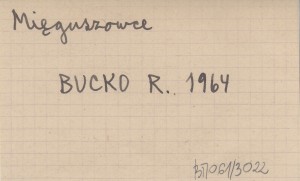 Mięguszowce
BUCKO R. 1964
BN061/3022